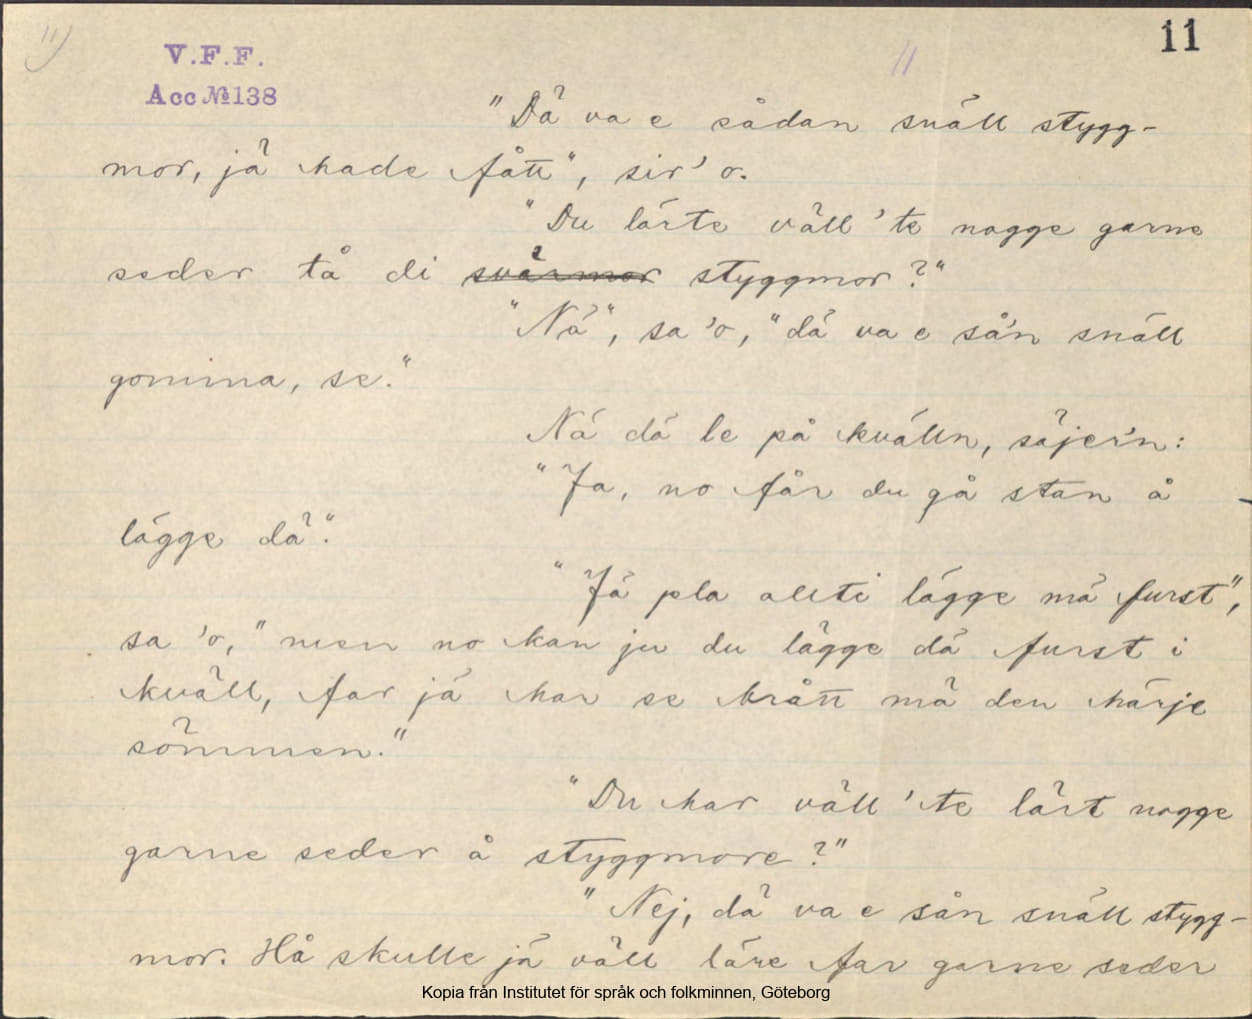 11)
V.F.F.
Acc № 138
11
11
"Dä va e sådan snäll stygg-
mor, jä hade fått", sir' o.
"Du lärte väll 'te nogge garne
seder tå di svärmor styggmor?"
"Nä", sa 'o, "dä va e så'n snäll
gomma, se."
Nä dä le på kvälln, säjer'n:
"Ja, no får du gå stan å
lägge dä".
"Jä pla allti lägge mä furst",
sa 'o, "men no kan ju du lägge dä furst i
kväll, far jä har se brått mä den härje
sömmen."
"Du har väll 'te lärt nogge
garne seder å styggmore?"
"Nej, dä va e sån snäll stygg-
mor. Hå skulle jä väll läre far garne seder
Kopia från Institutet för språk och folkminnen, Göteborg